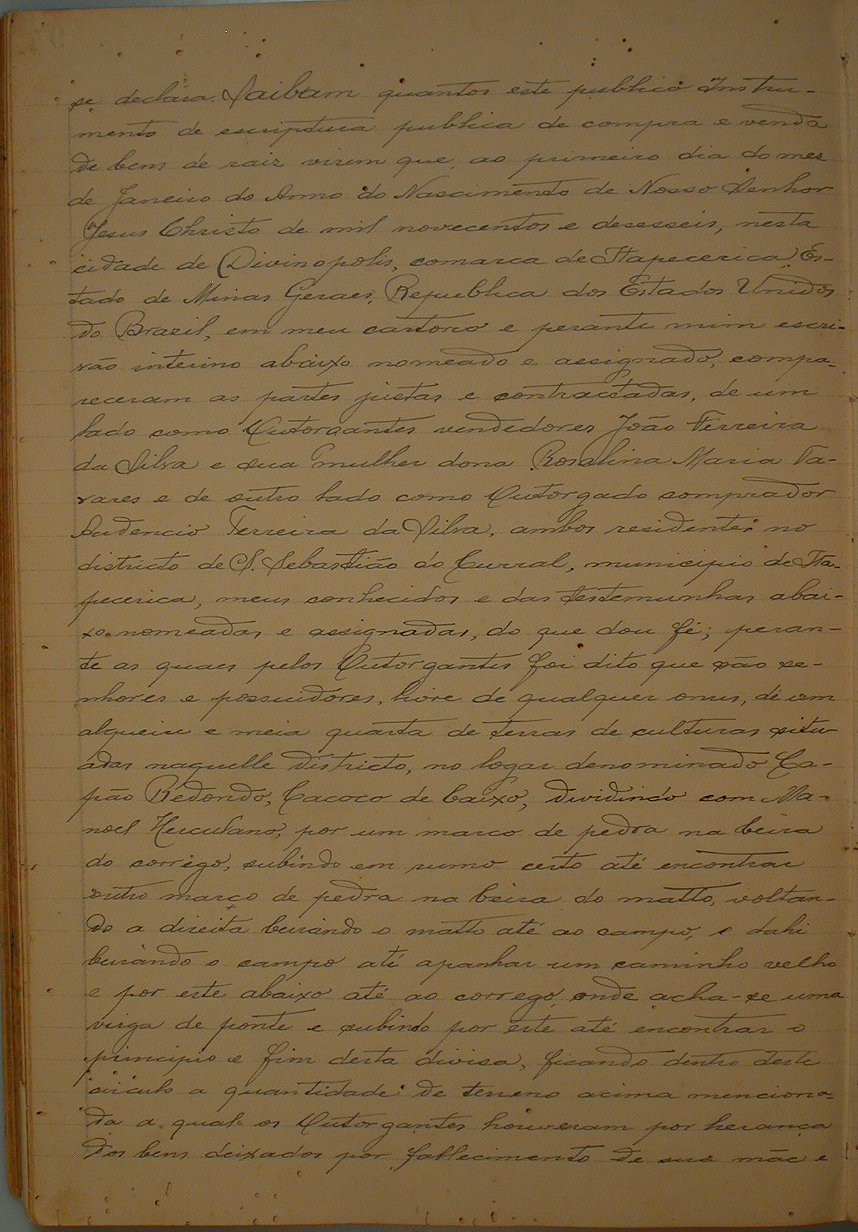 se declara. Saibam quantos este publico Instru-
mento de escriptura publica de compra e venda
de bens de raiz virem que, ao primeiro dia do mez
de Janeiro do Anno do Nascimento de Nosso Senhor
Jesus Christo de mil novecentos e deseseis, nesta
cidade de Divinopolis, comarca de Itapecerica, Es-
tado de Minas Geraes, Republica dos Estados Unidos
do Brazil, em meu cartorio e perante mim escri-
vão interino abaixo nomeado e assignado, compa-
receram as partes justas e contractadas, de um
lado como Outorgantes vendedores João Ferreira
da Silva e sua mulher dona Rosalina Maria Ta-
vares e de outro lado como Outorgado comprador
Audencio Ferreira da Silva, ambos residentes no
districto de S. Sebastião do Curral, municipio de Ita-
pecerica, meus conhecidos e das testemunhas abai-
xo nomeadas e assignadas, do que dou fé; peran-
te as quaes pelos Outorgantes foi dito que são se-
nhores e possuidores, livre de qualquer onus, de um
alqueire e meia quarta de terras de culturas situ-
adas naquelle districto, no logar denominado Ca-
pão Redondo, Cacoco de baixo, dividindo com Ma-
noel Herculano, por um marco de pedra na beira
do corrego, subindo em rumo certo até encontrar
outro marco de pedra na beira do matto, voltan-
do a direita beirando o matto até ao campo, e dahi
beirando o campo até apanhar um caminho velho
e por este abaixo até ao corrego, onde acha-se uma
virga de ponte e subindo por este até encontrar o
principio e fim desta divisa, ficando dentro deste
circulo a quantidade de terreno acima menciona-
da a qual os Outorgantes houveram por herança
dos bens deixados por fallecimento de sua mãe e